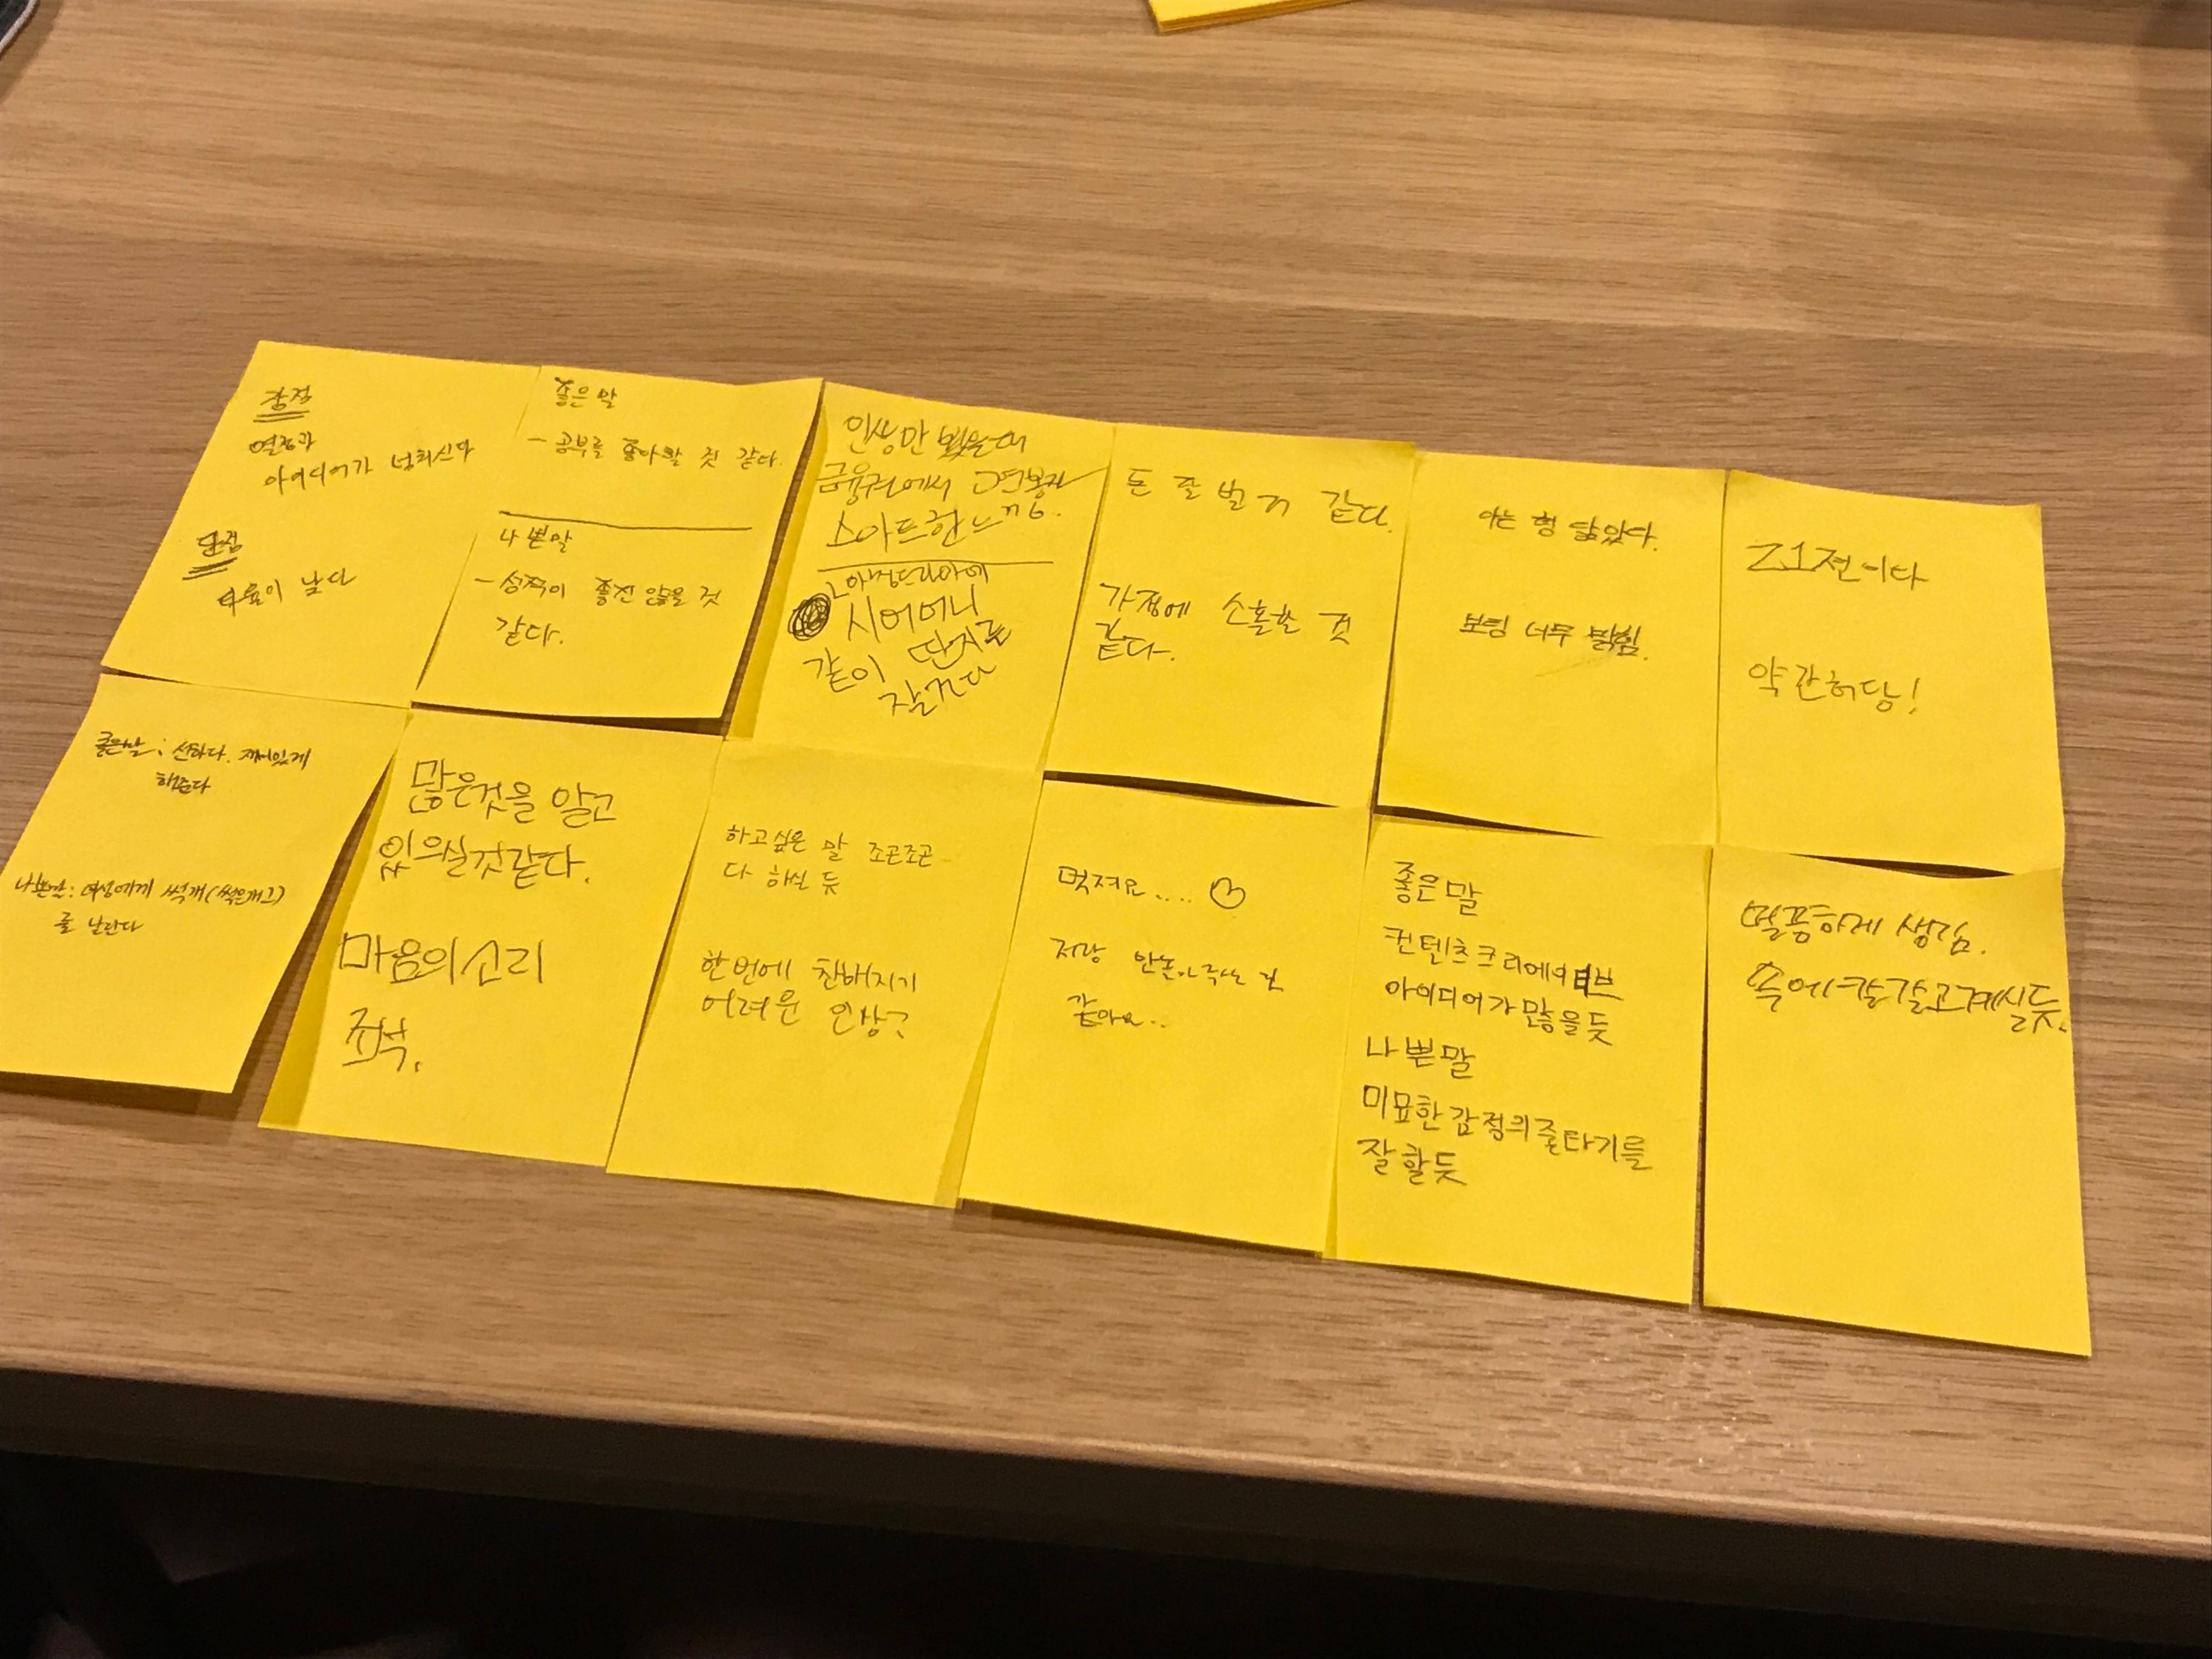 장점
열정과
아이디어가 넘희신다
단점
이 낮다
좋은 말
- 공부를 좋아할 것 같다.
나쁜말
- 성적이 좋진 않을 것
같다.
인상만 봤을때
금융권에서 고연봉자
스마트한 느낌.
아침드라마에
시어머니
같이 딴지를
잘건다
돈 잘 벌 거 같다.
가정에 소홀할 것
같다.
아는 형 닮았다.
보팅 너무 밝힘.
약간허당!
좋은말 : 선하다. 재미있게
해준다
나쁜말 : 여성에게 썩개(썩은개그)
를 날린다
많은것을 알고
있으실것같다.
마음의소리
조석.
하고싶은 말 조곤조곤
다 하실 듯
한 번에 친해지기
어려운 인상?
멋져요....
저랑 안놀아주는 것
같아요..
좋은말
컨텐츠크리에이티브
아이디어가 많을듯
나쁜말
미묘한 감정의줄타기를
잘할듯
멀끔하게 생김.
속에 칼갈고계실듯.